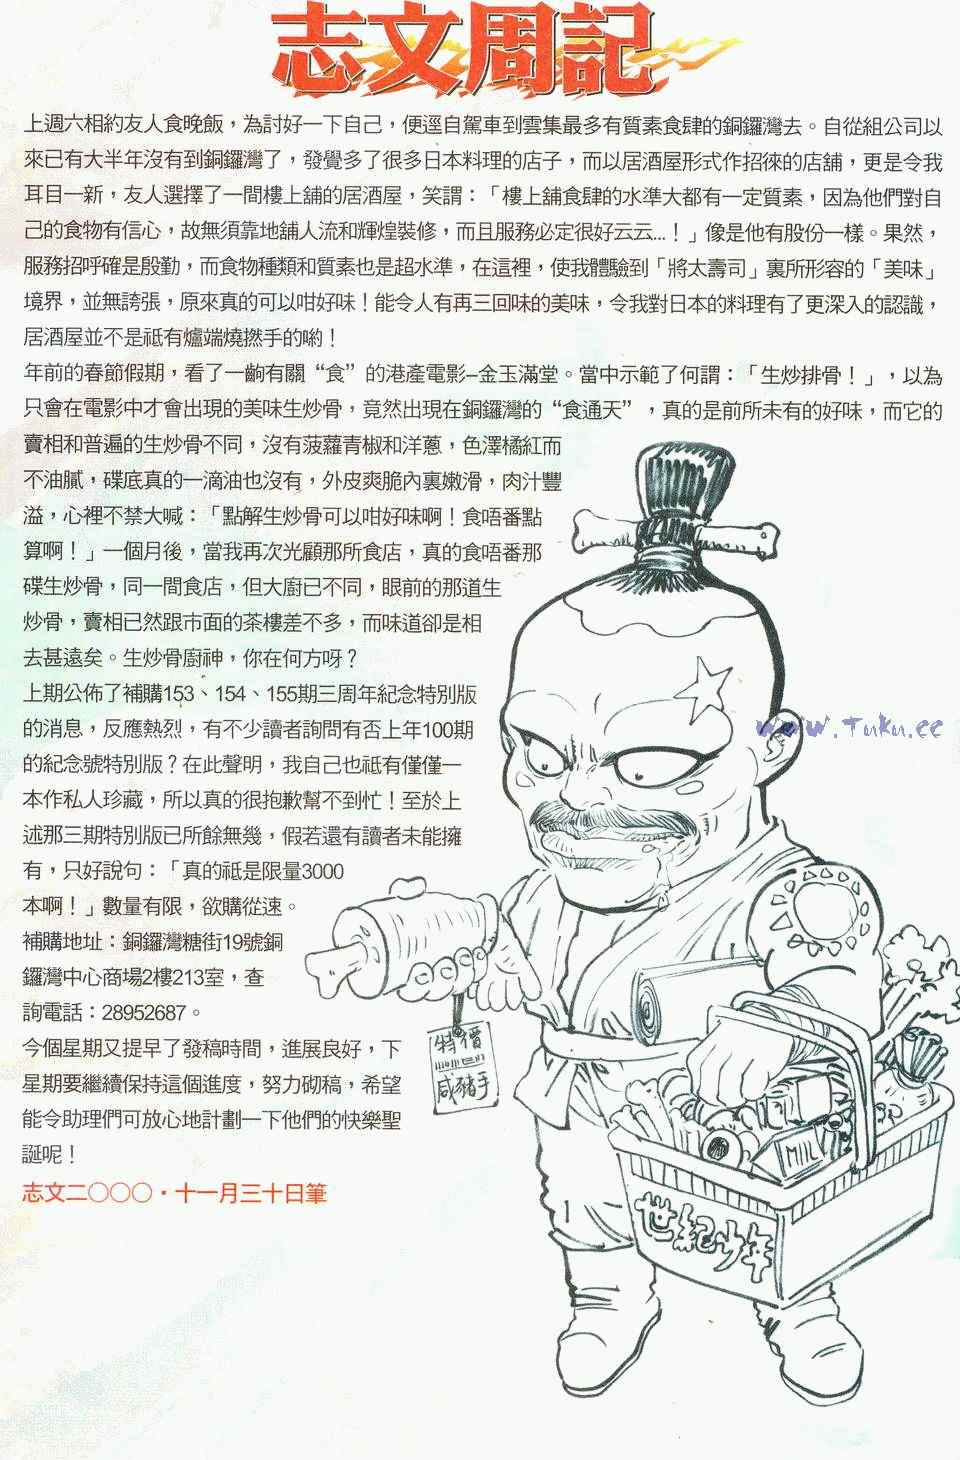 志文周記
上週六相約友人食晚飯，為討好一下自己，便逕自駕車到雲集最多有質素食肆的銅鑼灣去。自從組公司以
來已有大半年沒有到銅鑼灣了，發覺多了很多日本料理的店子，而以居酒屋形式作招徠的店舖，更是令我
耳目一新，友人選擇了一間樓上舖的居酒屋，笑謂：「樓上舖食肆的水準大都有一定質素，因為他們對自
己的食物有信心，故無須靠地舖人流和輝煌裝修，而且服務必定很好云云...！」像是他有股份一樣。果然，
服務招呼確是殷勤，而食物種類和質素也是超水準，在這裡，使我體驗到「將太壽司」裏所形容的「美味」
境界，並無誇張，原來真的可以咁好味！能令人有再三回味的美味，令我對日本的料理有了更深入的認識，
居酒屋並不是祗有爐端燒撚手的喲！
年前的春節假期，看了一齣有關“食”的港產電影–金玉滿堂。當中示範了何謂：「生炒排骨！」，以為
只會在電影中才會出現的美味生炒骨，竟然出現在銅鑼灣的“食通天”，真的是前所未有的好味，而它的
賣相和普遍的生炒骨不同，沒有菠蘿青椒和洋蔥，色澤橘紅而
不油膩，碟底真的一滴油也沒有，外皮爽脆內裏嫩滑，肉汁豐
溢，心裡不禁大喊：「點解生炒骨可以咁好味啊！食唔番點
算啊！」一個月後，當我再次光顧那所食店，真的食唔番那
碟生炒骨，同一間食店，但大廚已不同，眼前的那道生
炒骨，賣相已然跟市面的茶樓差不多，而味道卻是相
去甚遠矣。生炒骨廚神，你在何方呀？
上期公佈了補購153、154、155期三周年紀念特別版
的消息，反應熱烈，有不少讀者詢問有否上年100期
的紀念號特別版？在此聲明，我自己也祗有僅僅一
本作私人珍藏，所以真的很抱歉幫不到忙！至於上
述那三期特別版已所餘無幾，假若還有讀者未能擁
有，只好說句：「真的祗是限量3000
本啊！」數量有限，欲購從速。
補購地址：銅鑼灣糖街19號銅
鑼灣中心商場2樓213室，查
詢電話：28952687。
今個星期又提早了發稿時間，進展良好，下
星期要繼續保持這個進度，努力砌稿，希望
能令助理們可放心地計劃一下他們的快樂聖
誕呢！
志文二〇〇〇．十一月三十日筆
www.Tuku.cc
特價
咸豬手
MIIL
世紀少年